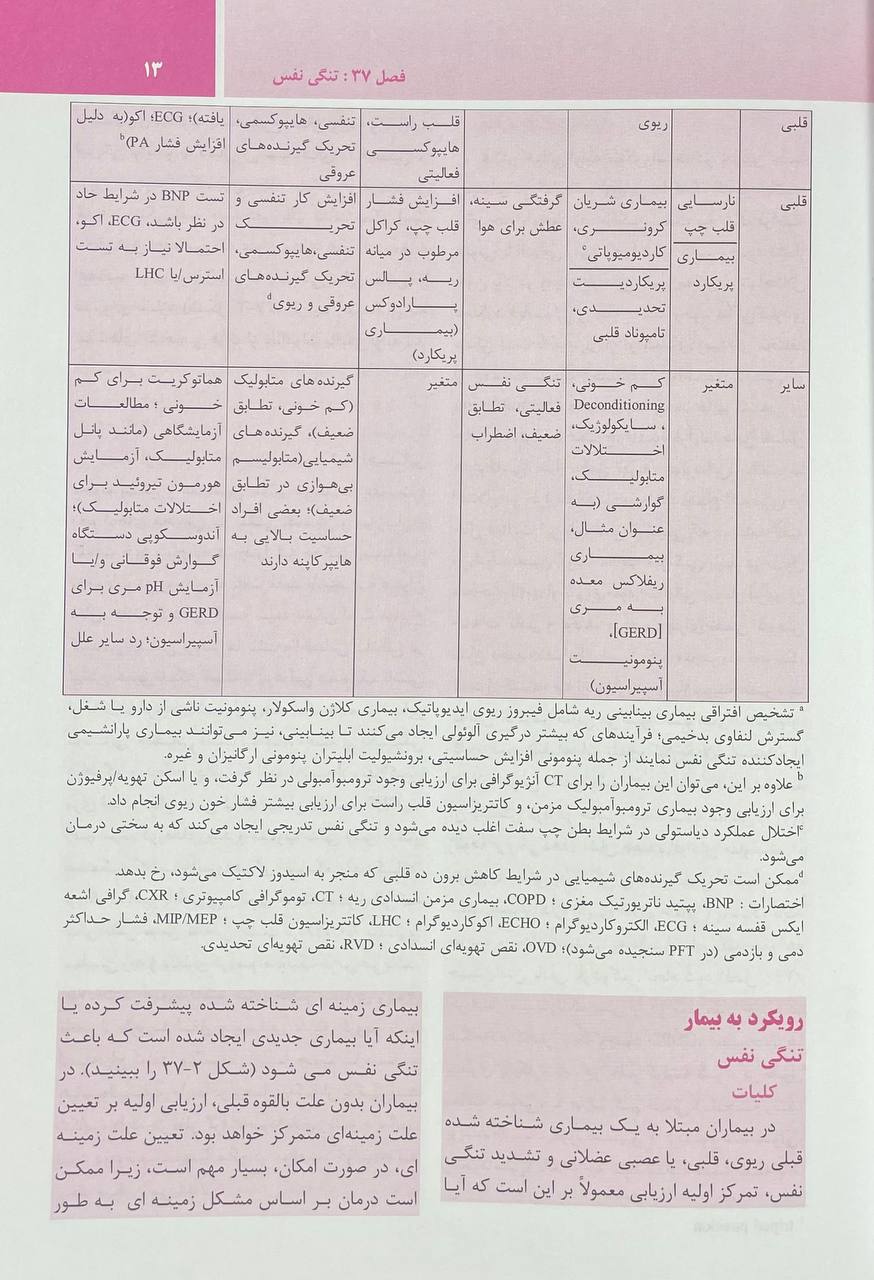 فصل ۳۷ : تنگی نفس
۱۳
قلبی
ریوی
قلب راست،
هایپوکسی
فعالیتی
تنفسی، هایپوکسمی،
تحریک گیرنده‌های
عروقی
یافته)؛ ECG؛ اکو(به دلیل
افزایش فشار PA)b
قلبی
نارسایی
قلب چپ
بیماری
پریکارد
بیماری شریان
کرونری،
کاردیومیوپاتی c
پریکاردیت
تحدیدی،
تامپوناد قلبی
گرفتگی سینه،
عطش برای هوا
افزایش فشار
قلب چپ، کراکل
مرطوب در میانه
ریه، پالس
پارادوکس
(بیماری
پریکارد)
افزایش کار تنفسی و
تحریک
تنفسی،هایپوکسمی،
تحریک گیرنده‌های
عروقی و ریوی d
تست BNP در شرایط حاد
در نظر باشد، ECG، اکو،
احتمالا نیاز به تست
استرس/یا LHC
سایر
متغیر
کم خونی،
Deconditioning
، سایکولوژیک،
اختلالات
متابولیک،
گوارشی (به
عنوان مثال،
بیماری
ریفلاکس معده
به مری
[GERD]،
پنومونیت
آسپیراسیون)
تنگی نفس
فعالیتی، تطابق
ضعیف، اضطراب
متغیر
گیرنده های متابولیک
(کم خونی، تطابق
ضعیف)، گیرنده های
شیمیایی(متابولیسم
بی‌هوازی در تطابق
ضعیف)؛ بعضی افراد
حساسیت بالایی به
هایپرکاپنه دارند
هماتوکریت برای کم
خونی ؛ مطالعات
آزمایشگاهی (مانند پانل
متابولیک، آزمایش
هورمون تیروئید برای
اختلالات متابولیک)؛
آندوسکوپی دستگاه
گوارش فوقانی و/یا
آزمایش pH مری برای
GERD و توجه به
آسپیراسیون؛ رد سایر علل
a تشخیص افتراقی بیماری بینابینی ریه شامل فیبروز ریوی ایدیوپاتیک، بیماری کلاژن واسکولار، پنومونیت ناشی از دارو یا شغل،
گسترش لنفاوی بدخیمی؛ فرآیندهای که بیشتر درگیری آلوئولی ایجاد می‌کنند تا بینابینی، نیز می‌توانند بیماری پارانشیمی
ایجادکننده تنگی نفس نمایند از جمله پنومونی افزایش حساسیتی، برونشیولیت ابلیتران پنومونی ارگانیزان و غیره.
b علاوه بر این، می‌توان این بیماران را برای CT آنژیوگرافی برای ارزیابی وجود ترومبوآمبولی در نظر گرفت، و یا اسکن تهویه/پرفیوژن
برای ارزیابی وجود بیماری ترومبوآمبولیک مزمن، و کاتتریزاسیون قلب راست برای ارزیابی بیشتر فشار خون ریوی انجام داد.
c اختلال عملکرد دیاستولی در شرایط بطن چپ سفت اغلب دیده می‌شود و تنگی نفس تدریجی ایجاد می‌کند که به سختی درمان
می‌شود.
d ممکن است تحریک گیرنده‌های شیمیایی در شرایط کاهش برون ده قلبی که منجر به اسیدوز لاکتیک می‌شود، رخ بدهد.
اختصارات : BNP، پپتید ناتریورتیک مغزی ؛ COPD، بیماری مزمن انسدادی ریه ؛ CT، توموگرافی کامپیوتری ؛ CXR، گرافی اشعه
ایکس قفسه سینه ؛ ECG، الکتروکاردیوگرام ؛ ECHO، اکوکاردیوگرام ؛ LHC، کاتتریزاسیون قلب چپ ؛ MIP/MEP، فشار حداکثر
دمی و بازدمی (در PFT سنجیده می‌شود)؛ OVD، نقص تهویه‌ای انسدادی ؛ RVD، نقص تهویه‌ای تحدیدی.
رویکرد به بیمار
تنگی نفس
کلیات
در بیماران مبتلا به یک بیماری شناخته شده
قبلی ریوی، قلبی، یا عصبی عضلانی و تشدید تنگی
نفس، تمرکز اولیه ارزیابی معمولاً بر این است که آیا
بیماری زمینه ای شناخته شده پیشرفت کرده یا
اینکه آیا بیماری جدیدی ایجاد شده است که باعث
تنگی نفس می شود (شکل ۲-۳۷ را ببینید). در
بیماران بدون علت بالقوه قبلی، ارزیابی اولیه بر تعیین
علت زمینه‌ای متمرکز خواهد بود. تعیین علت زمینه
ای، در صورت امکان، بسیار مهم است، زیرا ممکن
است درمان بر اساس مشکل زمینه ای به طور